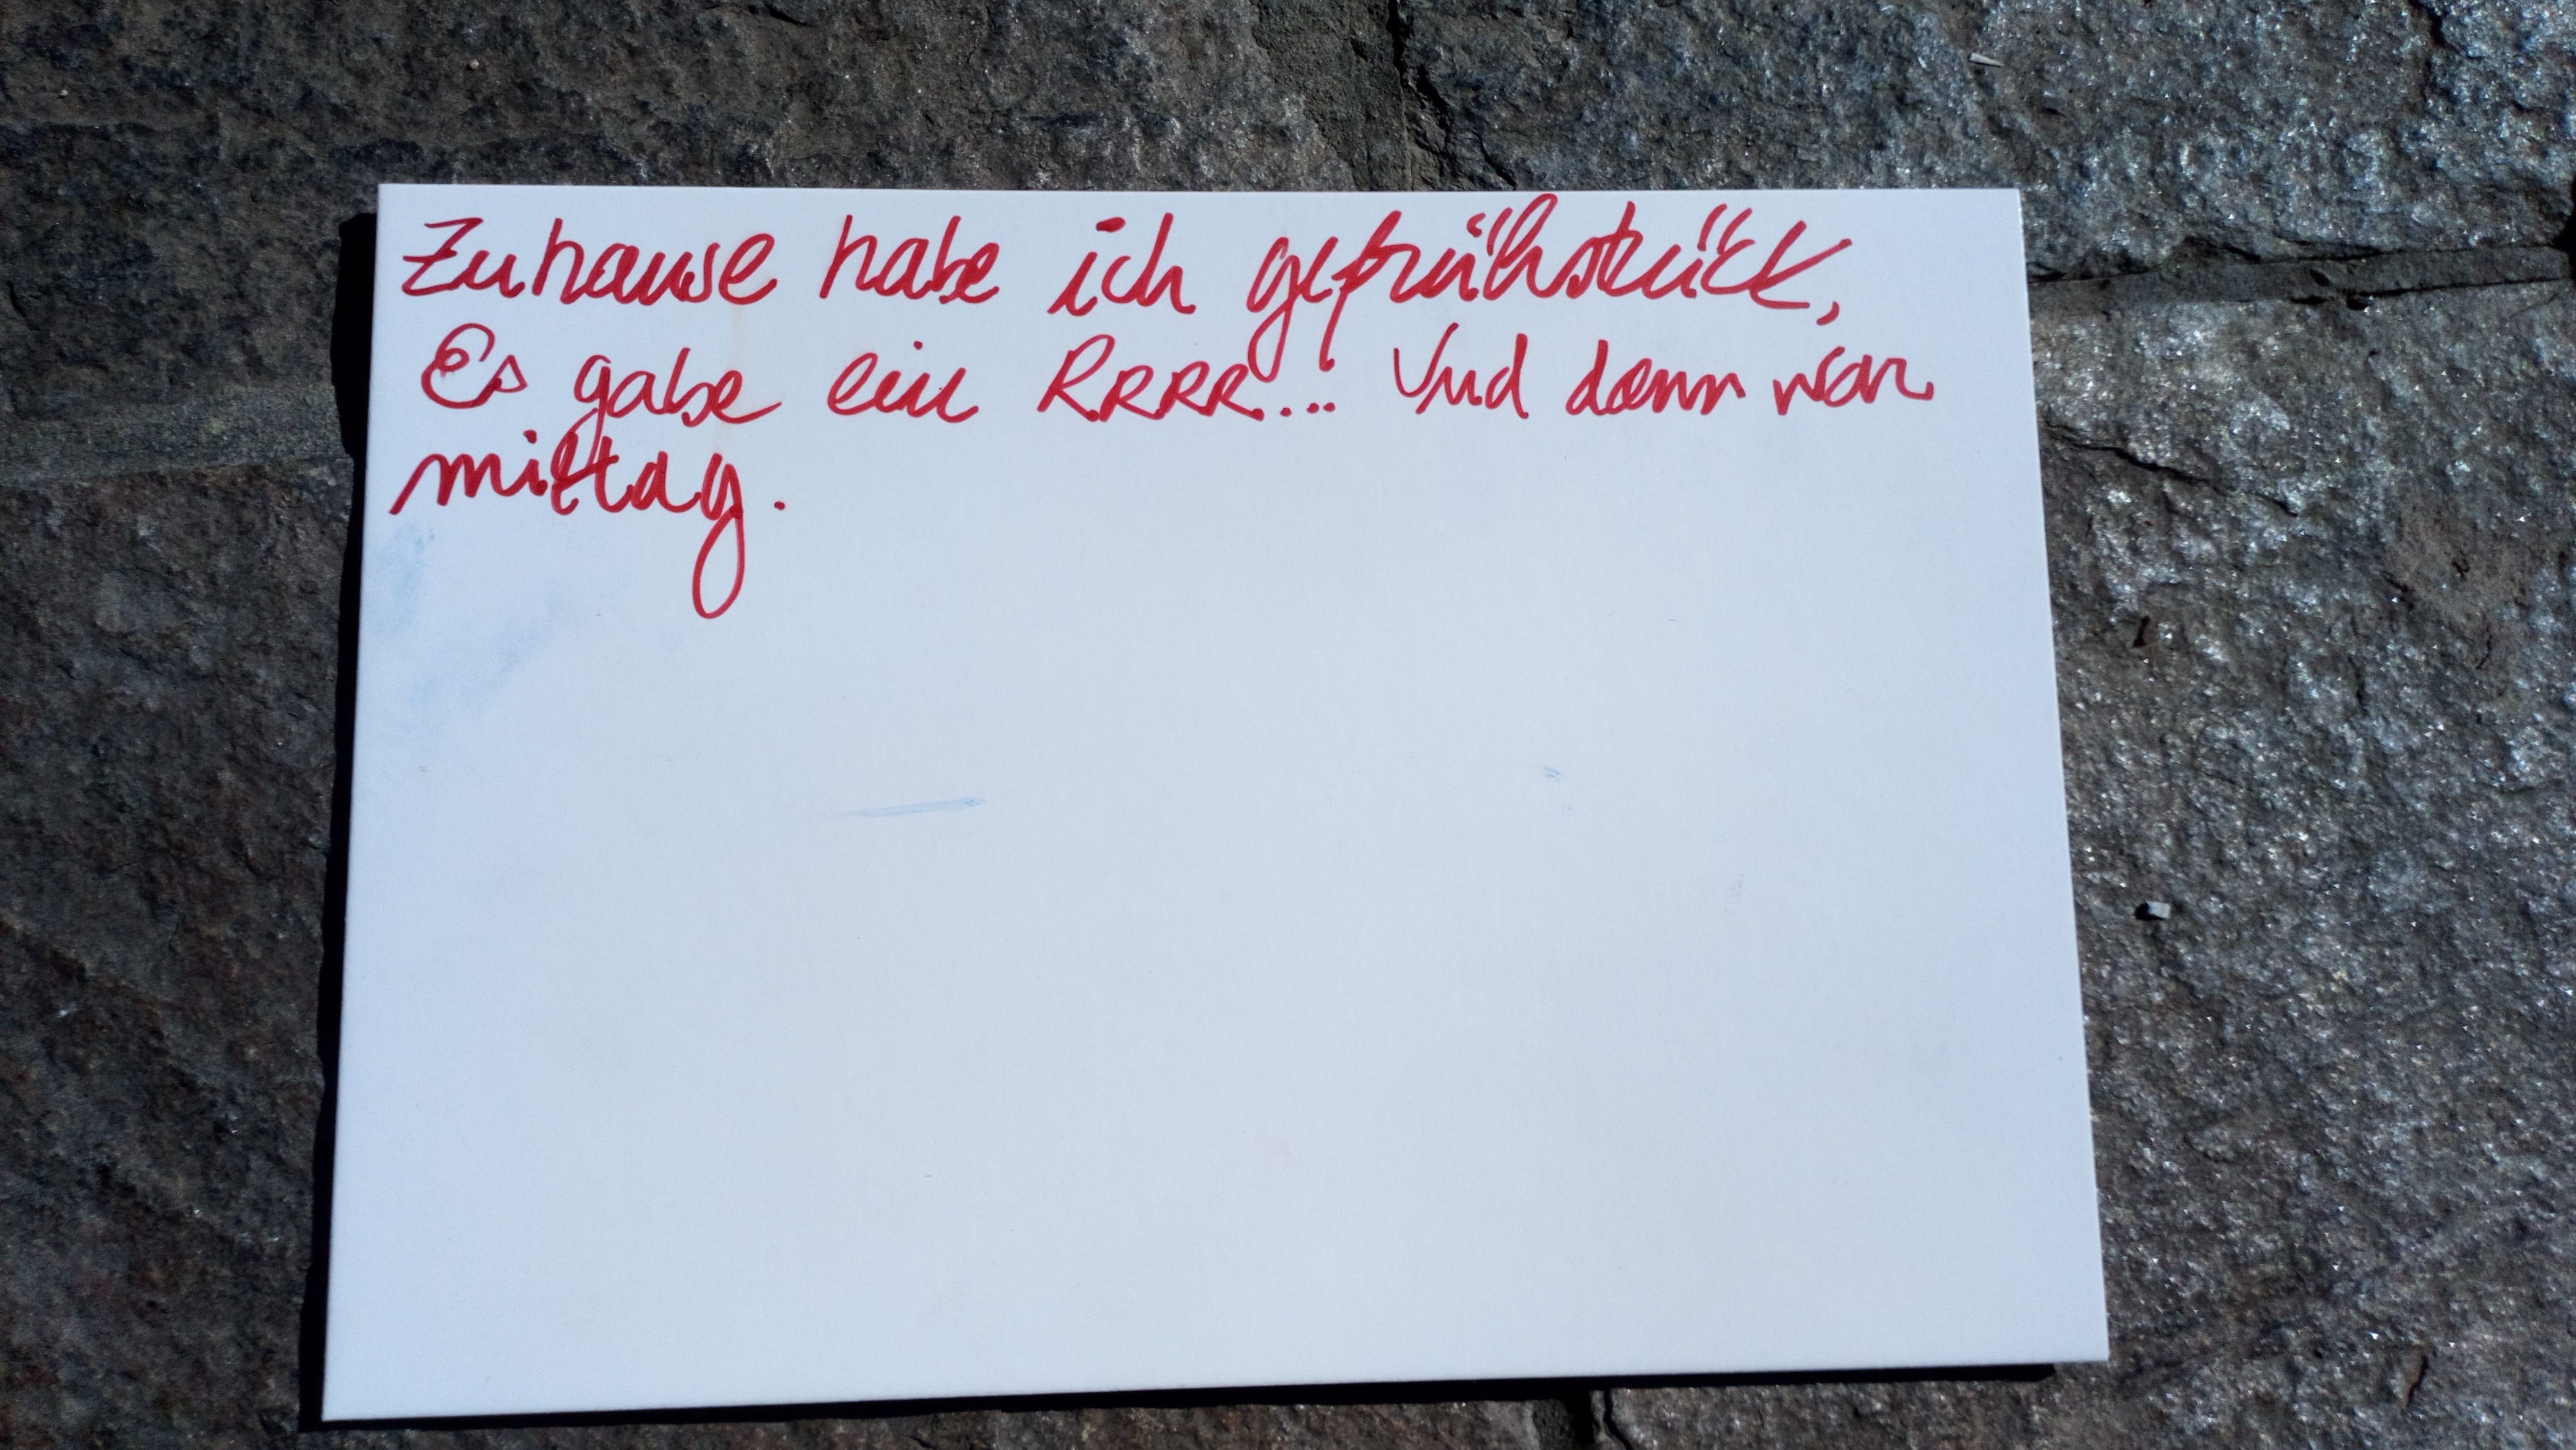 Zuhause habe ich gefrühstück,
Es gabe ein RRRR... Und dann war
mittag.